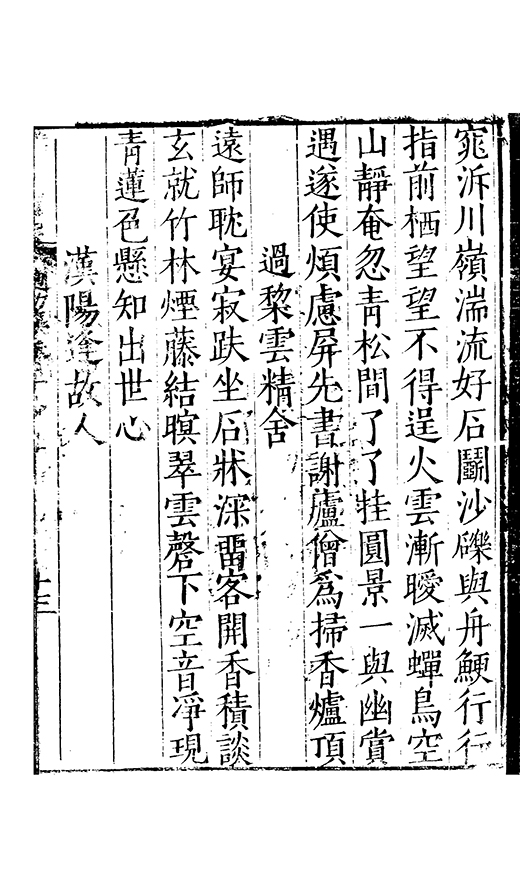 窕泝川嶺湍流好石鬭沙礫與舟鯁行行
指前栖望望不得逞火雲漸曖滅蟬鳥空
山靜奄忽青松間了了挂圓景一與幽賞
遇遂使煩慮屏先書謝廬僧爲掃香爐頂
過黎雲精舍
遠師耽宴寂趺坐石牀深畱客開香積談
玄就竹林煙藤結暝翠雲磬下空音凈現
青蓮色懸知出世心
漢陽逢故人
十三